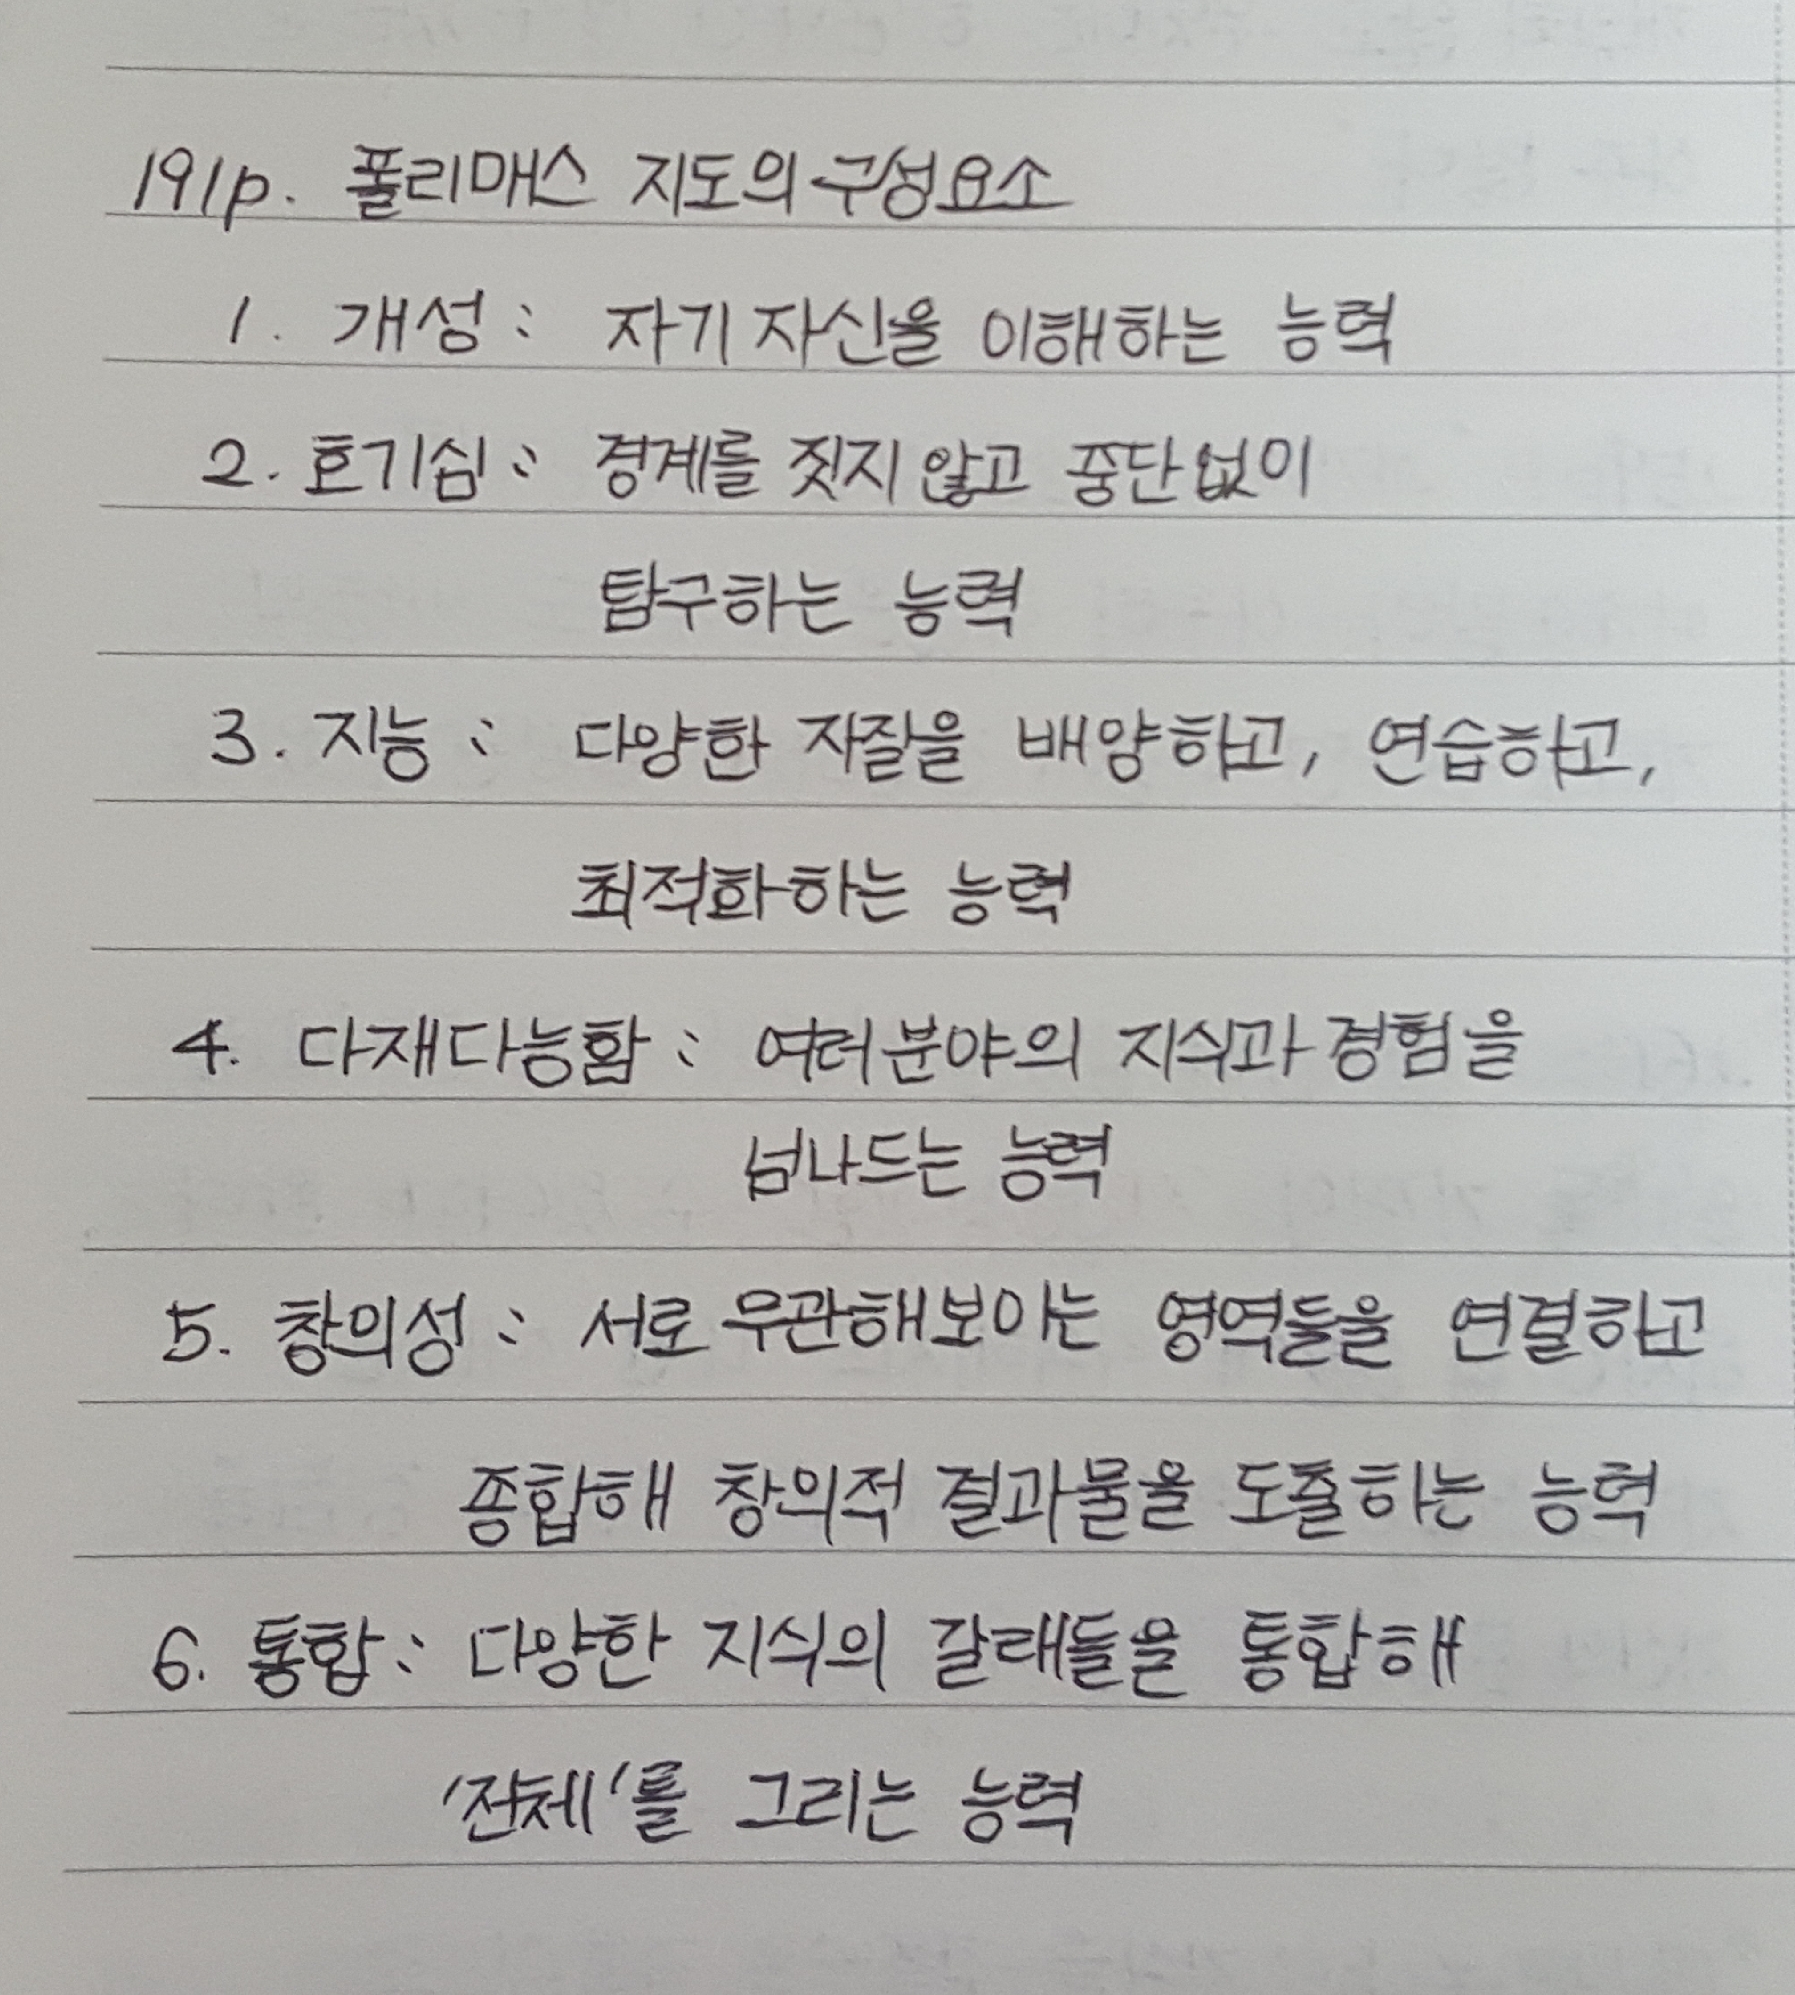 191p. 폴리매스 지도의 구성요소
1. 개성 : 자기 자신을 이해하는 능력
2. 호기심 : 경계를 짓지 않고 중단없이
탐구하는 능력
3. 지능 : 다양한 자질을 배양하고, 연습하고,
최적화하는 능력
4. 다재다능함 : 여러 분야의 지식과 경험을
넘나드는 능력
5. 창의성 : 서로 무관해보이는 영역들을 연결하고
종합해 창의적 결과물을 도출하는 능력
6. 통합 : 다양한 지식의 갈래들을 통합해
'전체'를 그리는 능력